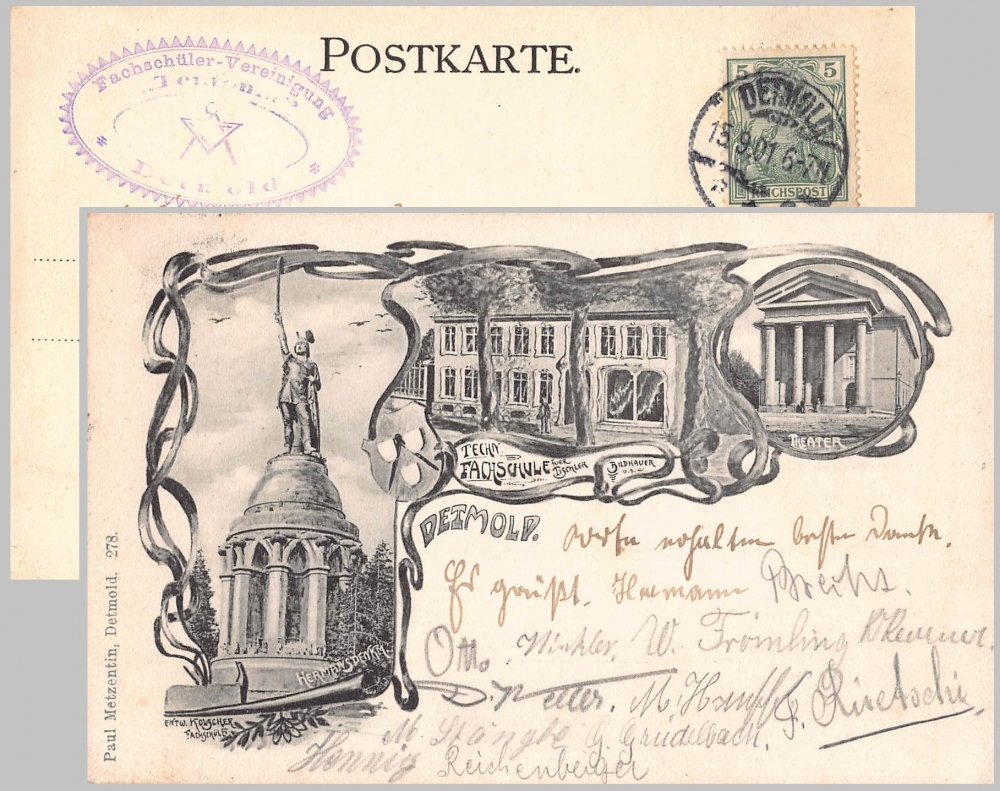 POSTKARTE.
Fachschüler-Vereinigung
Detmold
5 5
DETMOLD
15.9.01 6-7N
REICHSPOST
TECHN.
FACHSCHULE FUER TISCHLER
BILDHAUER
U.S.W.
THEATER
DETMOLD.
HERMANSDENKM.
ENTW. KÖLSCHER
FACHSCHULE
Paul Metzentin, Detmold. 278.
Karte erhalten besten Dank.
Es grüßt. Hermann
Otto Winkler, W. Frömling
M. Hampf F.
M. Stängle G. Grüdelbach,
Hennig Reichenberger